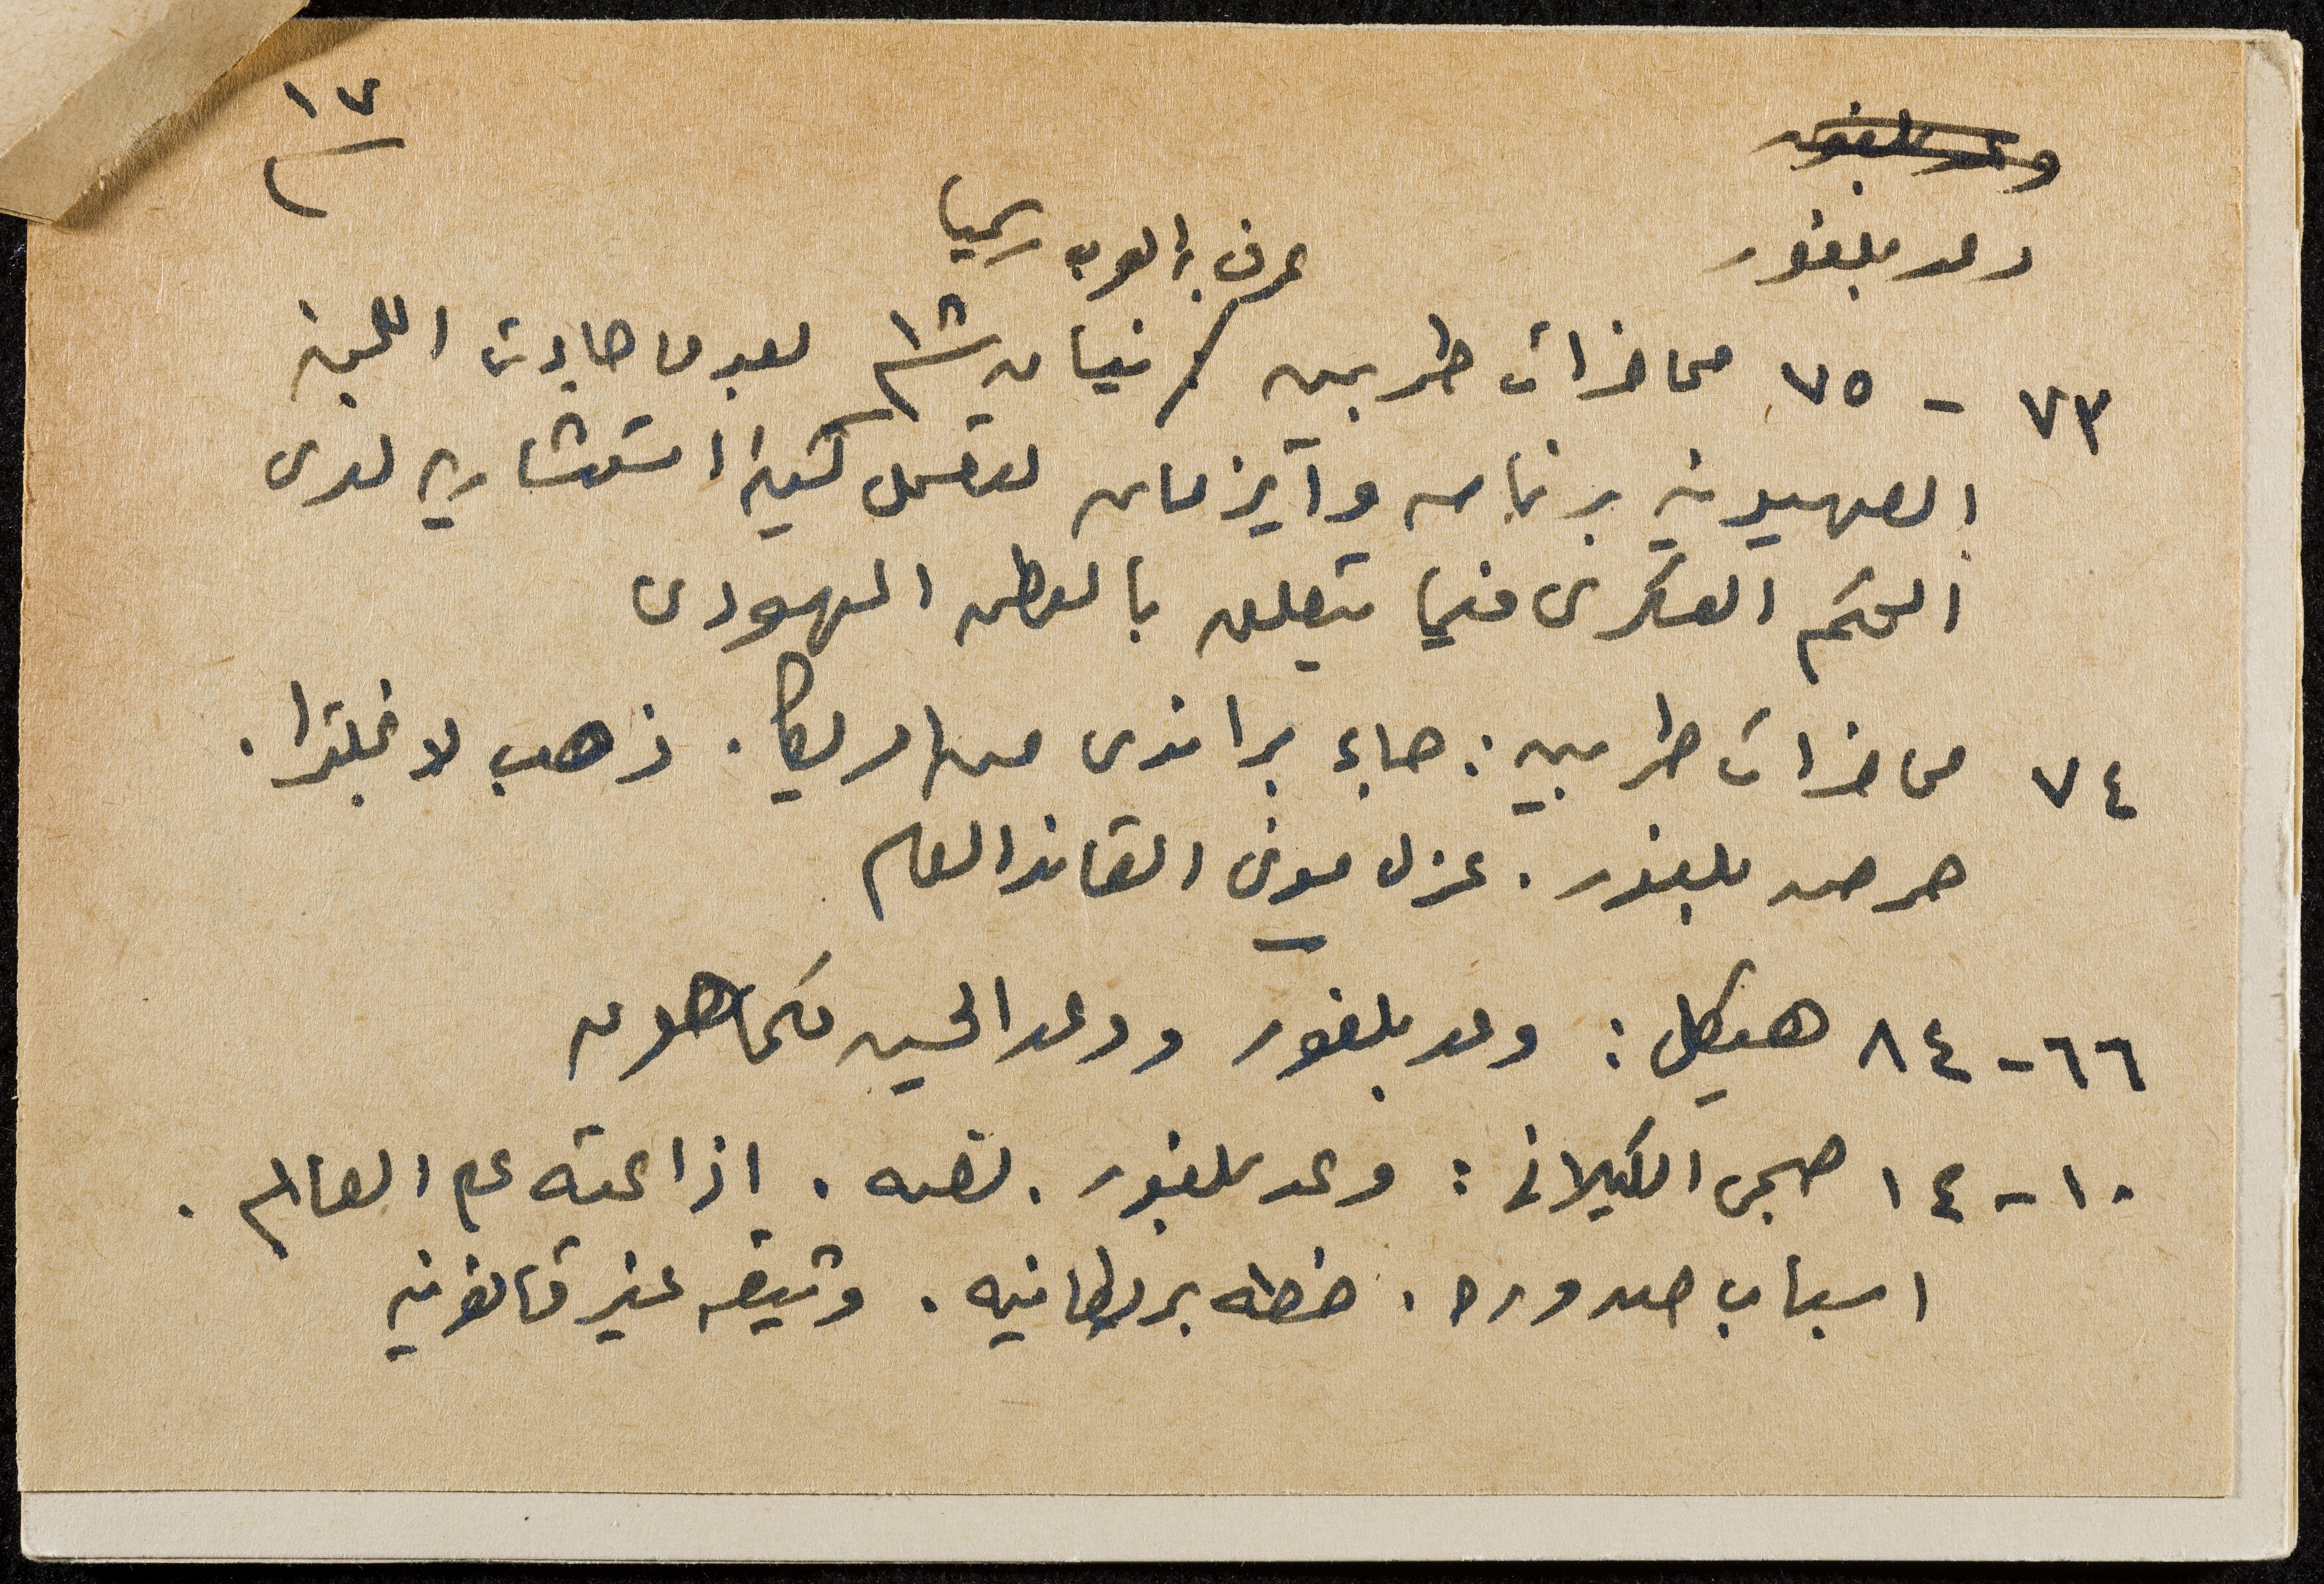 ١٧
وعد بلفور
وعد بلفور
عرف به العرب رسميا
٧٣ - ٧٥ محاضرات طربين / نيسان ١٨ بعدما جاءت اللجنة
الصهيونية برئاسة وايزمان لتعمل كهيئة استشارية لدى
الحكم العسكرى فيما يتعلق بالوطن اليهودى
٧٤ محاضرات طربين : جاء براندى من امريكا . ذهب لانجلترا .
حرضه بلفور . عزل مونى القائد العام
٦٦ - ٨٤ هيكل : وعد بلفور ووعد الحسين مكماهون
١٠ - ١٤ صبحى الكيلانى : وعد بلفور . نصه . اذاعته على العالم .
اسباب صدوره . خطه بريطانيه . وثيقه غير قانونيه